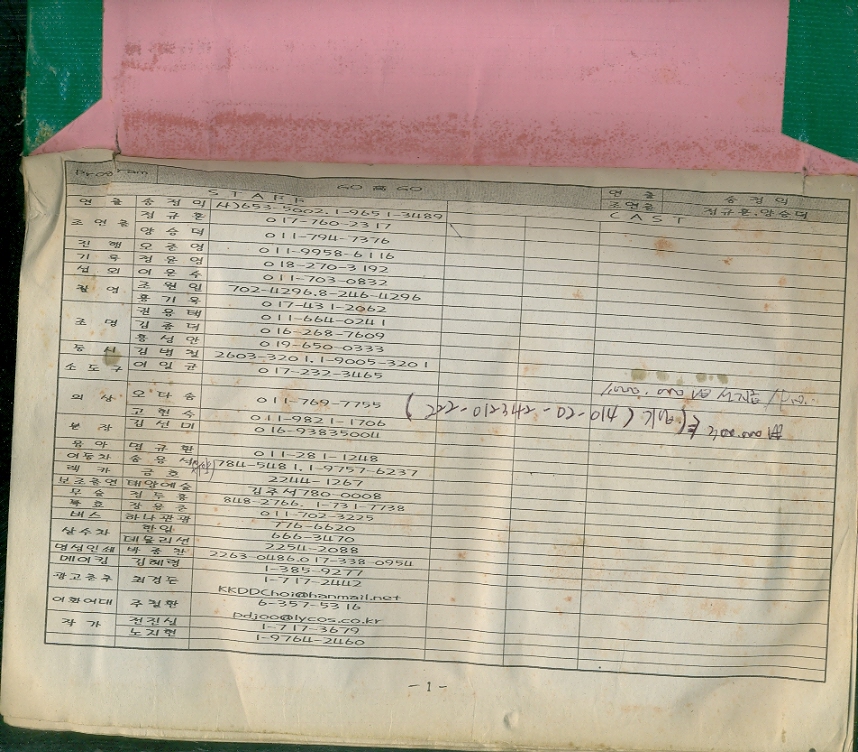 Program
GO 료 GO
연 출 송 정 의
조연출 정규훈,양승덕
START
CAST
연 출 송 정 의 사)653-5002. 1-9651-3489
조 연 출 정 규 훈 017-760-2317
양 승 덕 011-794-7376
진 행 오 준 영 011-9958-6116
기 록 정 윤 영 018-270-3192
섭 외 이 은 수 011-703-0832
촬 영 조 원 일 702-4296.8-246-4296
홍 기 욱 017-431-2062
조 명 권 용 택 011-664-0241
김 종 덕 016-268-7609
홍 성 안 019-650-0333
동 시 김 범 철 2603-3201. 1-9005-3201
소 도 구 이 일 균 017-232-3465
의 상 오 다 숑 011-769-7755
고 현 수 011-9821-1706
분 장 김 선 미 016-93835004
음 악 명 규 환 011-281-1248
이동차 송 용 석 784-5481. 1-9757-6237
렉 카 금 호 2244-1267
보조출연 태양예술 김주서780-0008
무 술 정 두 홍 848-2766. 1-731-7738
특 효 장 용 준 011-702-3225
버 스 하나관광 776-6620
살수차 한일 666-3470
대윤리선 2254-2088
명성인쇄 박 종 환 2263-0486.017-338-0954
메이킹 김혜령 1-385-9277
광고종주 최경돈 1-717-2442
KKDDChoi@hanmail.net
이화여대 주철환 6-357-5316
Ddjoo@lycos.co.kr
작 가 전진실 1-717-3679
노지현 1-9764-2460
222-012342-02-014
- 1 -